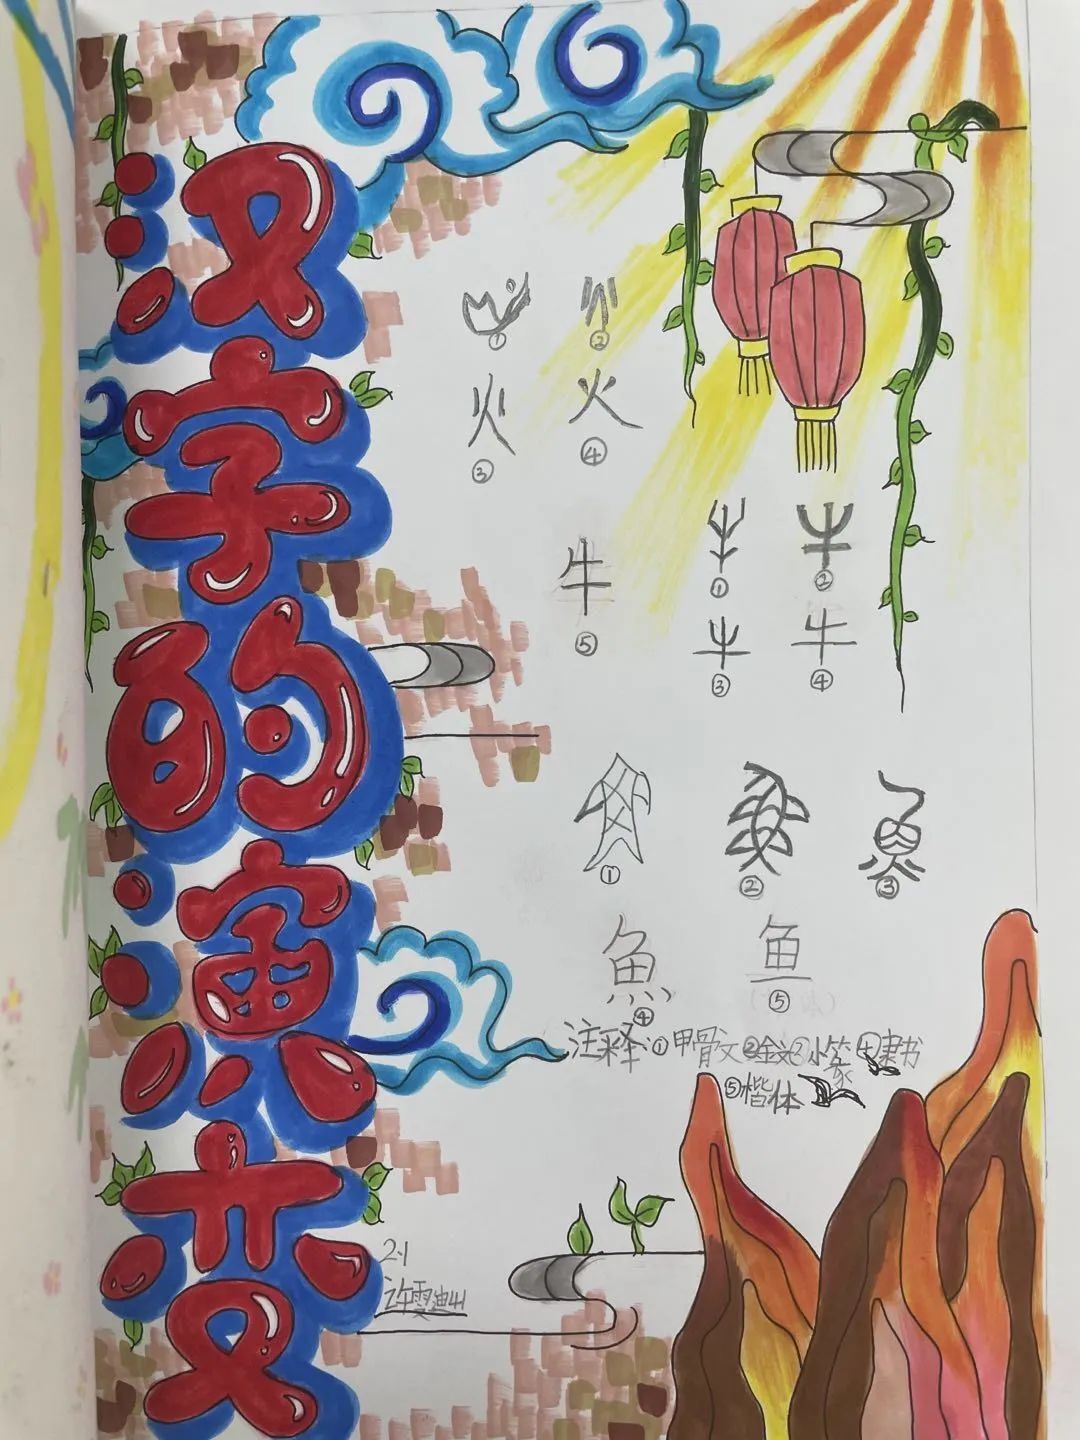 汉字的演变
① ②
火 火
③ ④
牛 ⑤
① ②
牛
③ ④
① ② ③
魚 ④ 鱼 ⑤
注释:①甲骨文②金文③小篆④隶书
⑤楷体
2.1